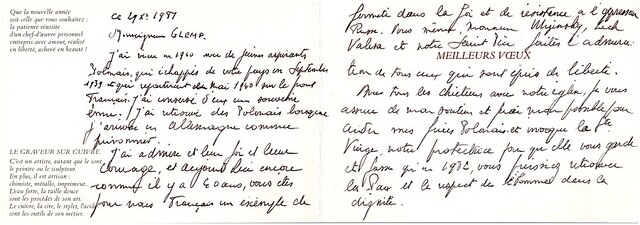 Que la nouvelle année
soit celle que vous souhaitez :
la patiente réussite
d'un chef-d'œuvre personnel
entrepris avec amour, réalisé
en liberté, achevé en beauté !
LE GRAVEUR SUR CUIVRE.
C'est un artiste, autant que le sont
le peintre ou le sculpteur.
En plus, il est artisan :
chimiste, métallo, imprimeur.
L'eau forte, la taille douce
sont les procédés de son art.
Le cuivre, la cire, le stylet, l'acide
sont les outils de son métier.
ce 1981
Monseigneur GLEMP.
J'ai vécu en 1940 avec de jeunes aspirants
Polonais, qui échappés de votre pays en Septembre
1939 et qui repartirent en Mai 1940 sur le front
Français. J'ai conservé d'eux un souvenir
ému. J'ai retrouvé des Polonais lorsque
j'arrivai en Allemagne comme
prisonnier.
J'ai admiré et leur foi et leur
courage, et aujourd'hui encore
comme il y a 40 ans, vous êtes
pour nous Français un exemple de
fermeté dans la foi et de résistance à l'oppression
Russe. Vous même, Monsieur Lech
Valesa et notre Saint Père faites l'admira-
MEILLEURS VŒUX
tion de tous ceux qui sont épris de liberté.
Avec tous les chrétiens avec notre église, je vous
assure de mon soutien et ferai mon possible pour
aider mes frères Polonais et invoque la Ste
Vierge notre protectrice pour qu'elle vous garde
et fasse qu'en 1982, vous puissiez retrouver
la Paix et le respect de l'homme dans la
dignité.